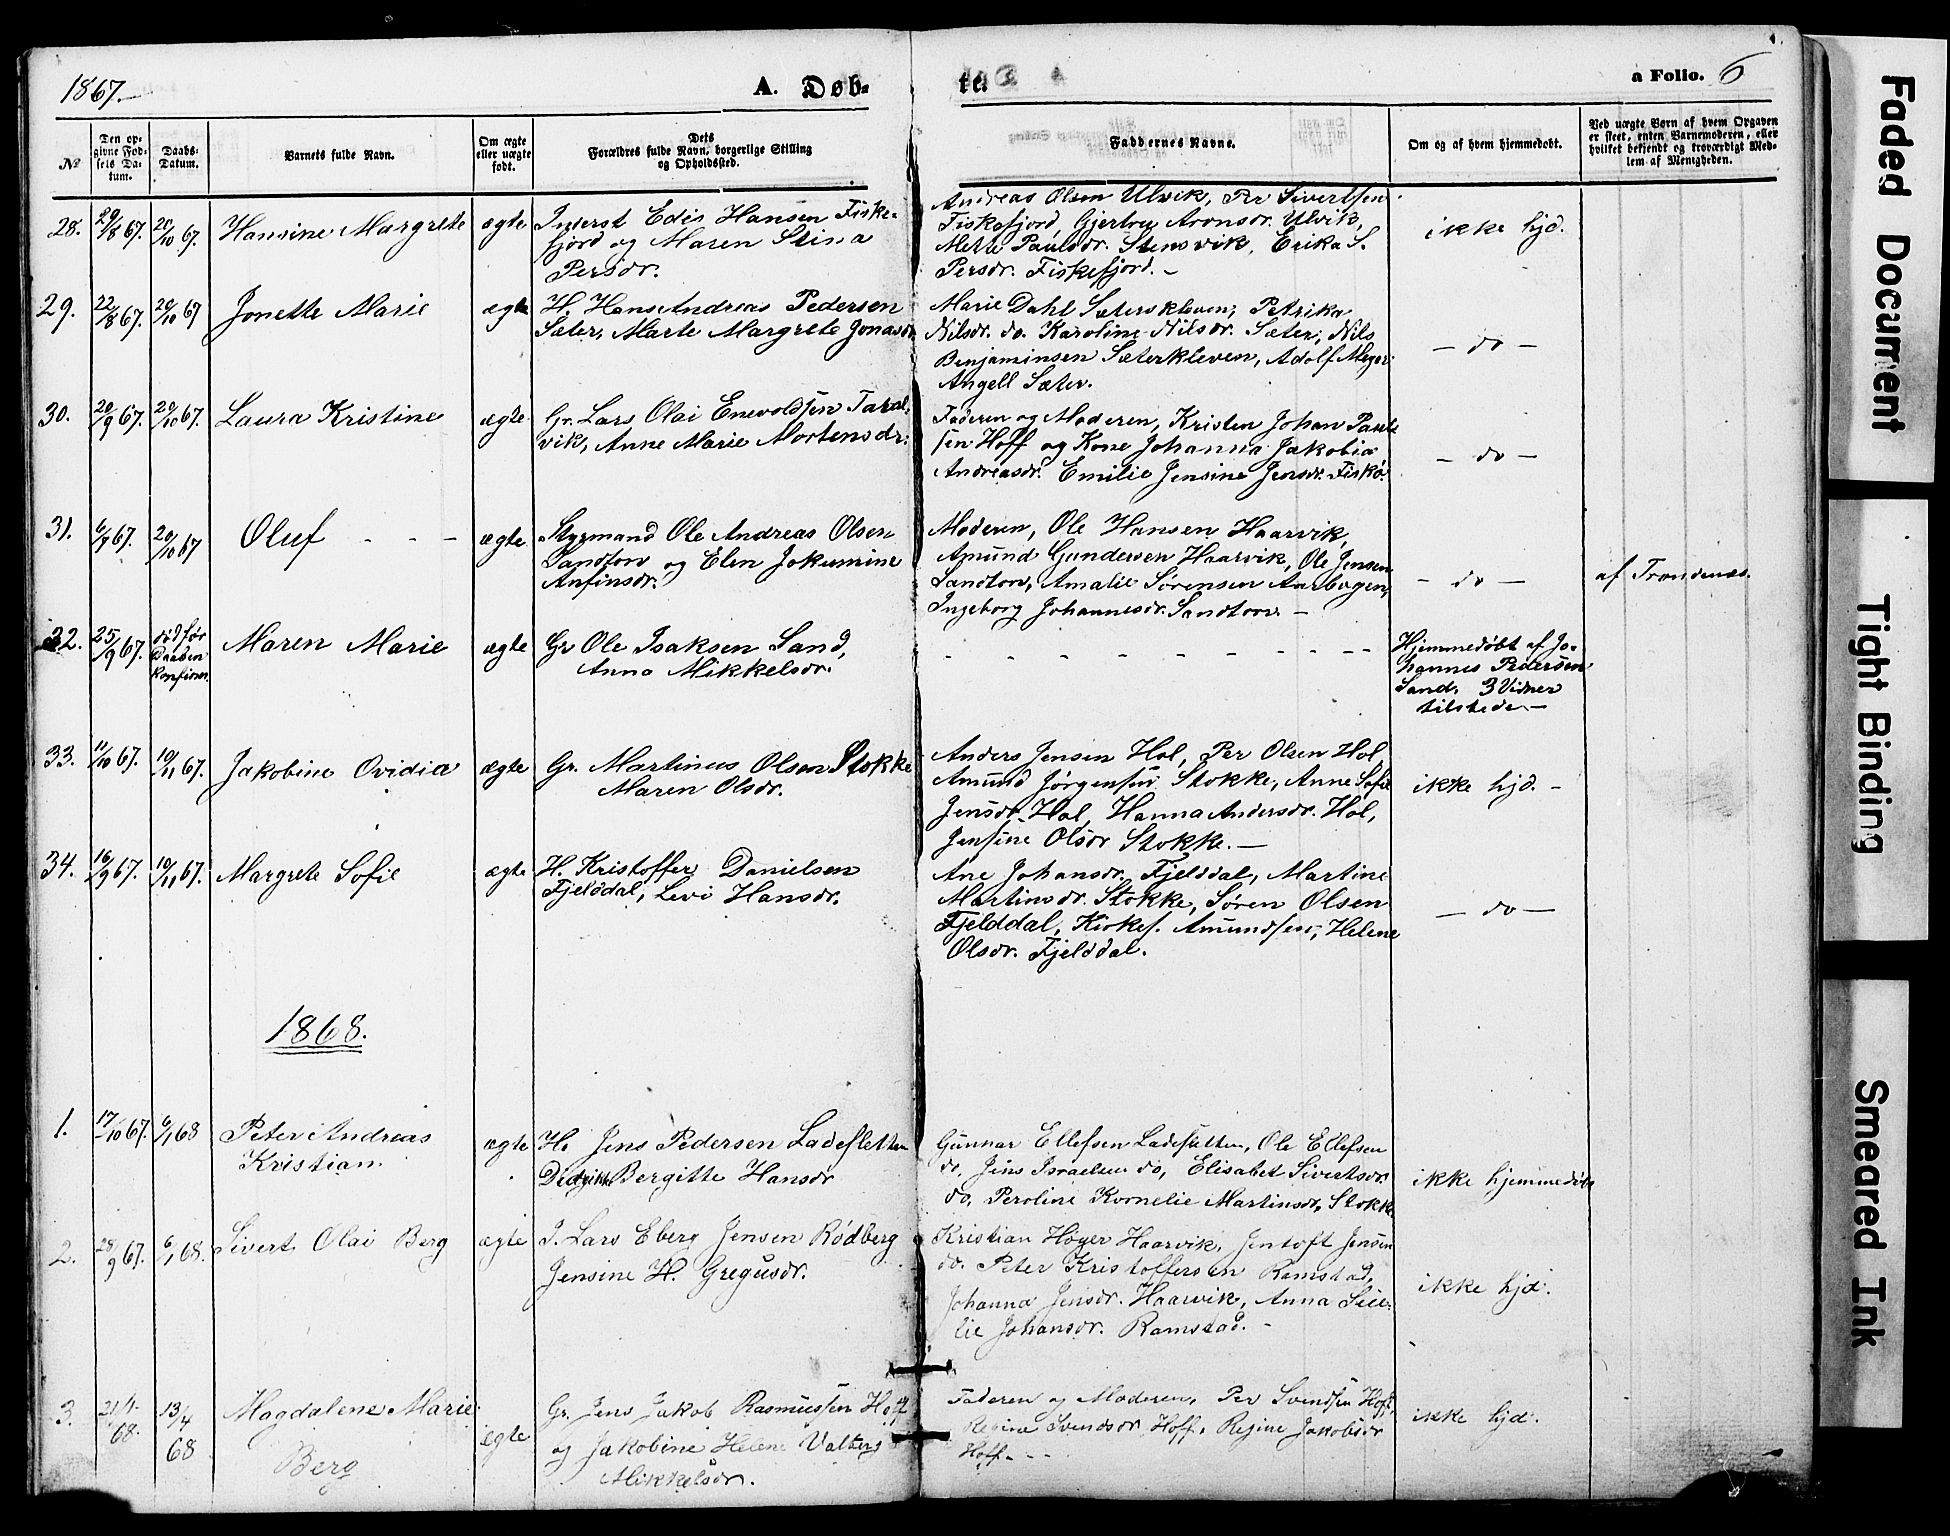 1867.
A. Døb-
te.
a Folio. 6
№
Den op-
givne Fød-
sels Da-
tum.
Daabs-
Datum.
Barnets fulde Navn.
Om ægte
eller uægte
født.
Dets
Forældres fulde Navn, borgerlige Stilling
og Opholdssted.
Faddernes Navne.
Om og af hvem hjemmedøbt.
Ved uægte Børn af hvem Opgaven
er skeet, enten Barnemoderen, eller
hvilket bekjendt og troværdigt Med-
lem af Menigheden.
28. 29/8 67. 20/10 67. Hansine Margrete ægte
Inderst Edis Hansen Fiske-
fjord og Maren Stina
Persdr.
Andreas Olsen Ulvik, Per Sivertsen
Fiskefjord, Gjertru Aronsdr. Ulvik,
Mette Paulsdr. Stensvik, Erika S.
Persdr. Fiskefjord. –
ikke hjd.
29. 22/8 67. 20/10 67 Jonette Marie ægte
H. Hans Andreas Pedersen
Sæter, Marte Margrete Jonasdr
Marie Dahl Sæterskleven, Petrika
Nilsdr. do. Karoline Nilsdr. Sæter, Nils
Benjaminsen Sæterkleven, Adolf Meyer
Angell Sæter.
– do –
30. 20/9 67. 20/10 67. Laura Kristine ægte
Gr. Lars Olai Enevoldsen Taral-
vik, Anne Marie Mortensdr.
Faderen og Moderen, Kristen Johan Paul
sen Hoff og Kone Johanna Jakobia
Andreasdr. Emilie Jensine Jensdr. Fiskö.
– do –
31. 6/7 67. 20/10 67 Oluf - - - ægte
Styrmand Ole Andreas Olsen
Sandtorv og Elen Jokumine
Anfinsdr.
Moderen, Ole Hansen Haarvik,
Amund Gundersen Haarvik, Ole Jensen
Sandtorv, Amalie Sørensen Aarbogen,
Ingeborg Johannesdr. Sandtorv. –
– do –
af Trondenæs.
32. 25/9 67. død før
Daaben
konfirm.
Maren Marie ægte
Gr Ole Isaksen Sand,
Anna Mikkelsdr.
- - - - - - - - -
Hjemmedøbt af Jo-
hannes Pedersen
Sand. 3 Vidner
tilstede. –
33. 11/10 67. 10/11 67. Jakobine Ovidia ægte
Gr. Martinus Olsen Stokke
Maren Olsdr.
Anders Jensen Hol, Per Olsen Hol
Amund Jørgensen Stokke, Anne Sofie
Jensdr. Hol, Hanna Andersdr. Hol,
Jensine Olsdr Stokke. –
ikke hjd. –
34. 16/9 67. 10/11 67. Margrete Sofie ægte
H. Kristoffer Danielsen
Fjelddal, Levi Hansdr.
Ane Johansdr. Fjelddal, Martine
Martinsdr. Stokke, Søren Olsen
Fjelddal, Kirkes. Amundsen, Helene
Olsdr. Fjelddal.
– do –
1868.
1. 17/10 67. 6/1 68 Peter Andreas
Kristian
ægte
H. Jens Pedersen Ladesletten
Bergitte Hansdr
Gunnar Ellefsen Ladesletten, Ole Ellefsen
do. Jens Israelsen do, Elisabet Sivertsdr.
do, Peroline Kornelie Martinsdr. Stokke
ikke hjemmedøbt
2. 28/9 67. 6/1 68. Sivert Olai Berg ægte
I. Lars Eberg Jensen Rödberg
Jensine H. Gregusdr.
Kristian Høyer Haarvik, Jentoft Jensen
do. Peter Kristoffersen Ramstad,
Johanna Jensdr. Haarvik, Anna
Johansdr. Ramstad. –
ikke hjd.
3. 21/1 68. 13/4 68 Magdalene Marie
Berg
ægte
Gr. Jens Jakob Rasmussen Hoff
og Jakobine Helene Valberg
Mikkelsdr.
Faderen og Moderen, Per Svendsen Hoff,
Regina Svendsdr Hoff, Regine Jakobsdr
Hoff. - -
ikke hjd.
Faded Document
Tight Binding
Smeared Ink